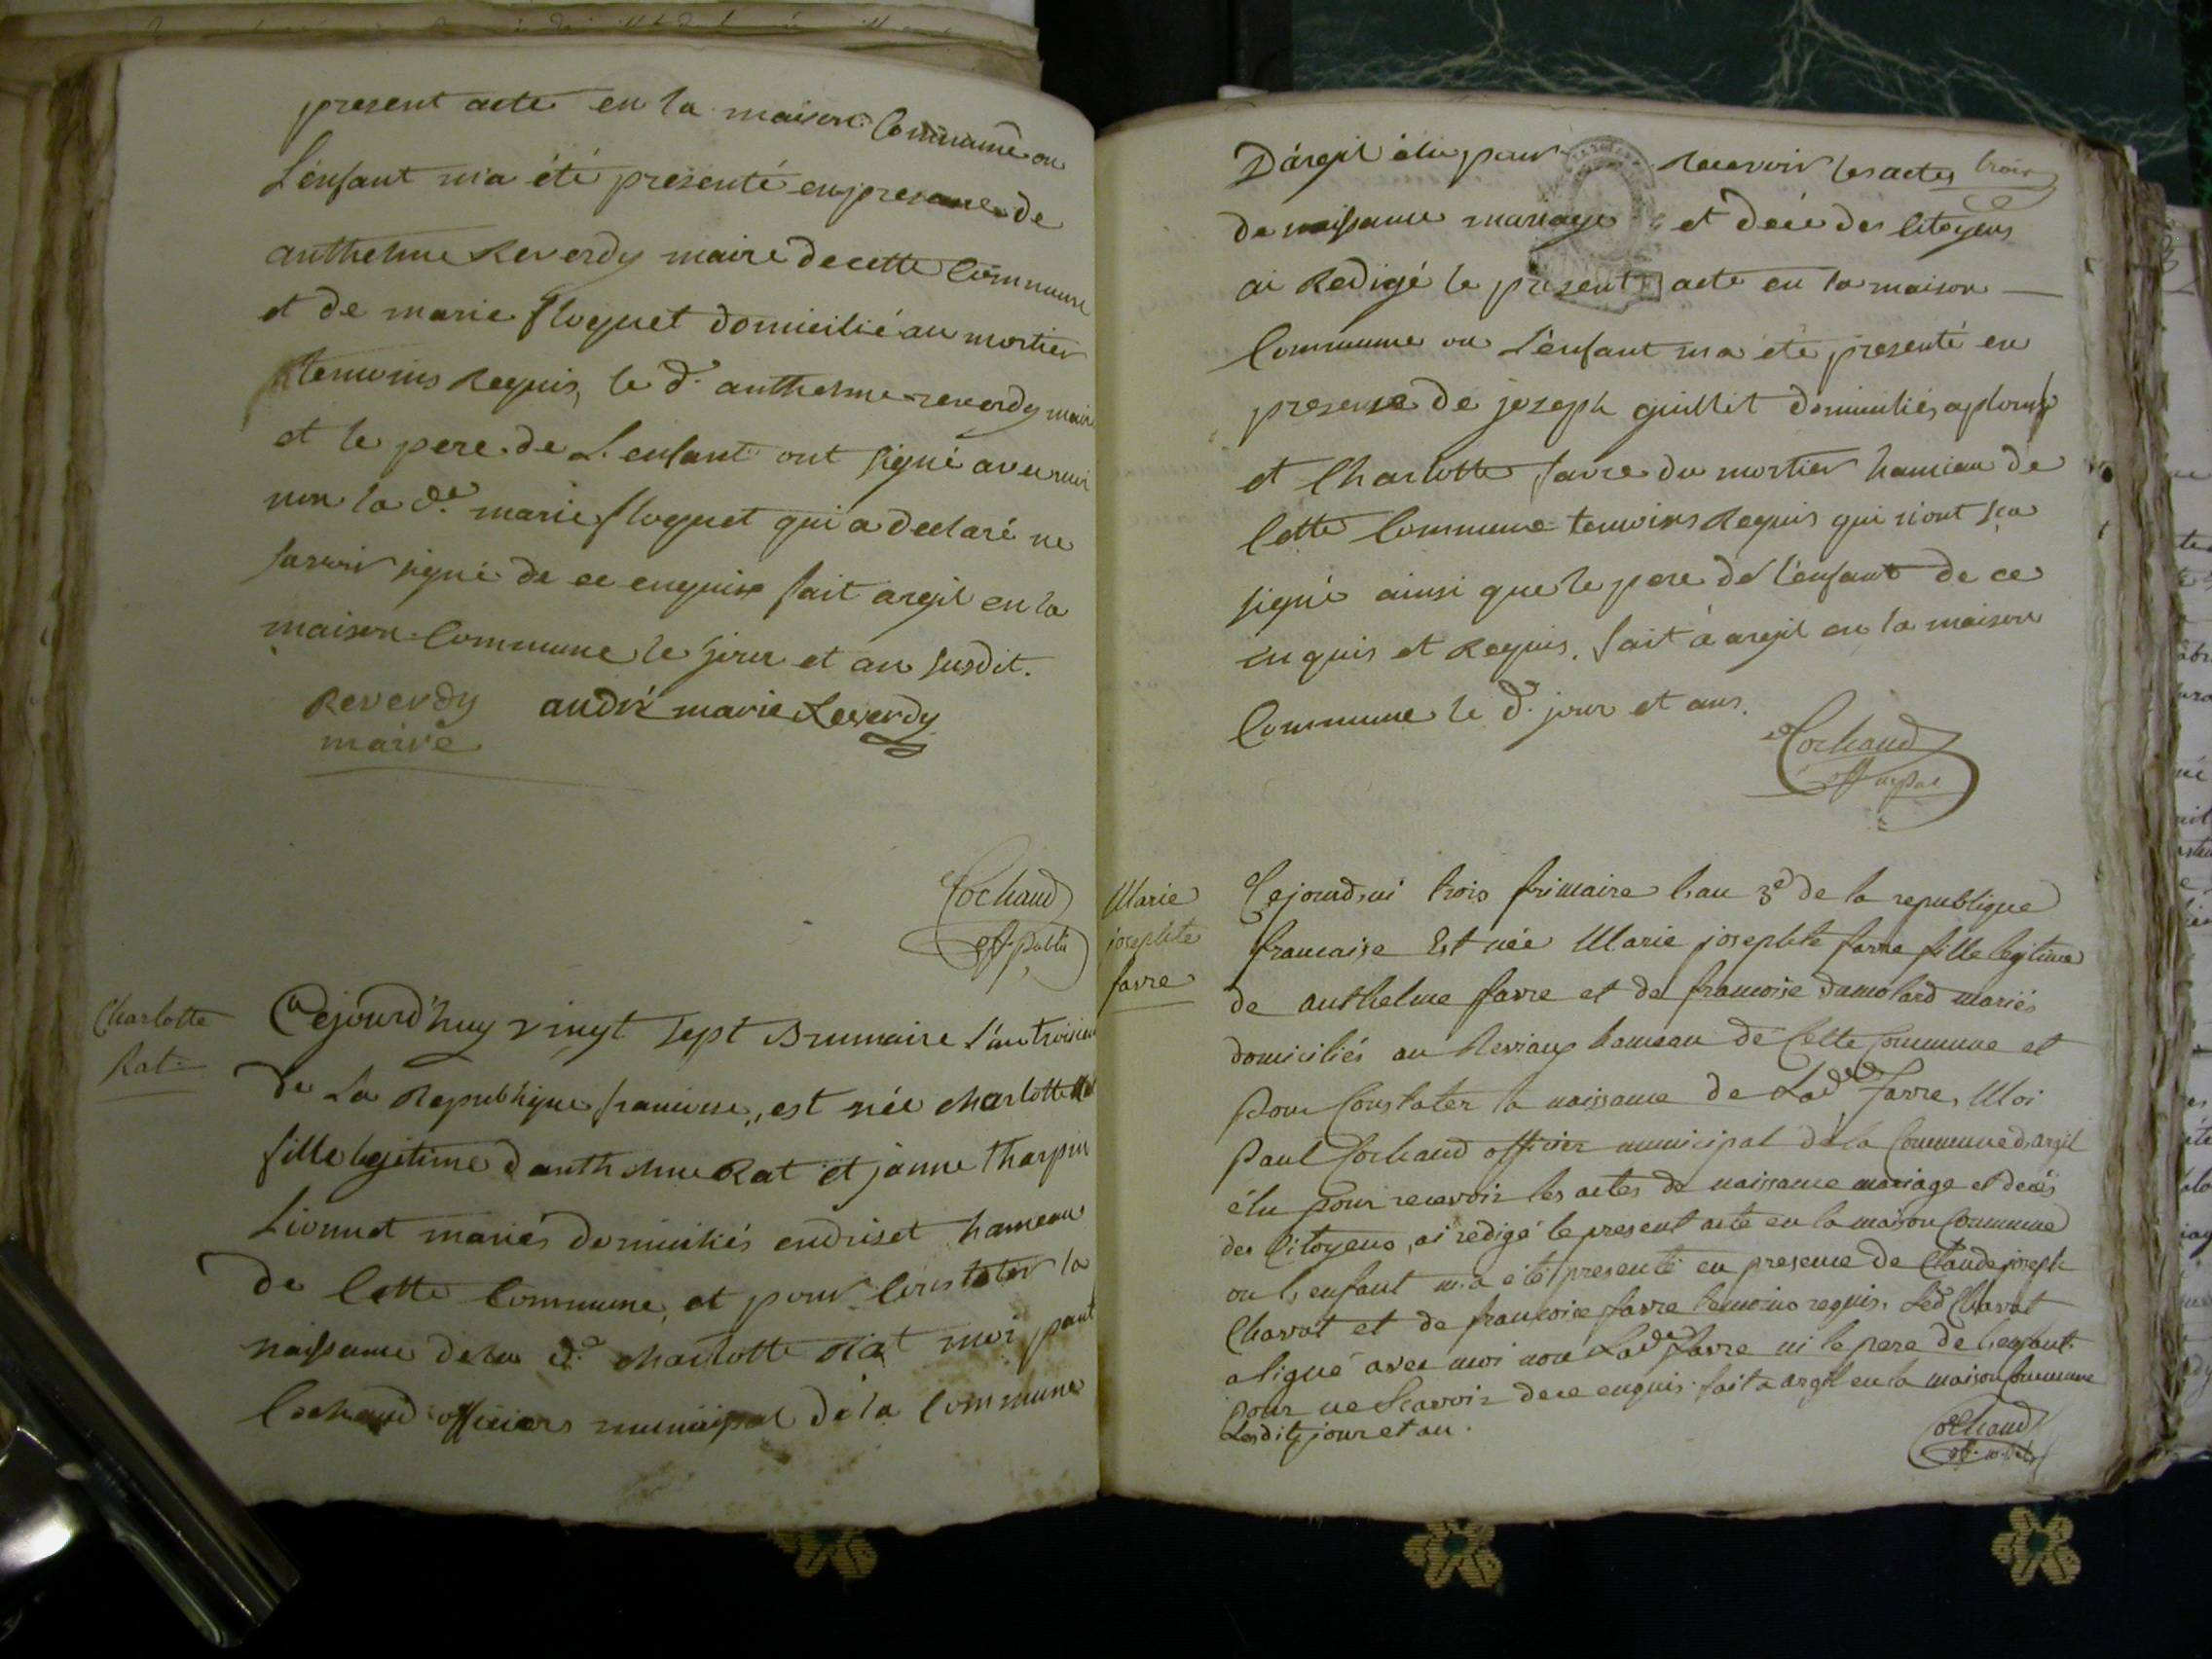 present acte en la maison Commune ou
L'enfant m'a été présenté en presance de
anthelme Reverdy maire de cette Commune
et de marie floquet domicilié au mortier
temoins Requis, le d. anthelme reverdy maire
et le pere de L'enfant ont signé avec moi
non la d.e marie floquet qui a declaré ne
savoir signé de ce enquise fait argil en la
maison Commune le jour et an susdit.
Reverdy andré marie Reverdy
maire
Cochaud
off. public
Charlotte
Rat
Cejourd'huy vingt sept Brumaire l'an troisieme
de La Republique francaise, est née charlotte Rat
fille legitime d'anthelme Rat et janne Tharpin
Lionnet mariés domiciliés endriset hameau
de Cette Commune, et pour Constater la
naissance de la d.e charlotte Rat moi paul
Cochaud officiers municipal de la Commune
D'argil élu pour Recevoir les actes trois
de naissance mariage et décé des Citoyens
ai Redigé le présent acte en la maison
Commune ou L'enfant m'a été présenté en
presense de joseph guillit domiciliés
et Charlotte favre du mortier hameau de
Cette Commune temoins Requis qui n'ont sça
signé ainsi que le pere de l'enfant de ce
inquis et Requis. fait à argil en la maison
Commune le d. jour et ans.
Cochaud
Marie
josephte
favre
Cejourd'ui trois frimaire l'an 3e de la republique
francaise Est née Marie josephte favre fille legitime
de anthelme favre et de francoise Damolard mariés
domiciliés au Revraux hameau de Cette Commune et
pour Constater la naissance de Lad.e favre, Moi
Paul Cochaud officier municipal de la Commune d'argil
élu pour recevoir les actes de naissance mariage et decès
des Citoyens, ai redigé le present acte en la maison Commune
ou l'enfant m'a été presenté en presence de Claude joseph
Chavat et de francoise favre temoins requis. Led. Chavat
a signé avec moi non Lad.e favre ni le pere de l'enfant
pour ne Scavoir de ce enquis fait a argil en la maison Commune
Lesdits jour et an.
Cochaud